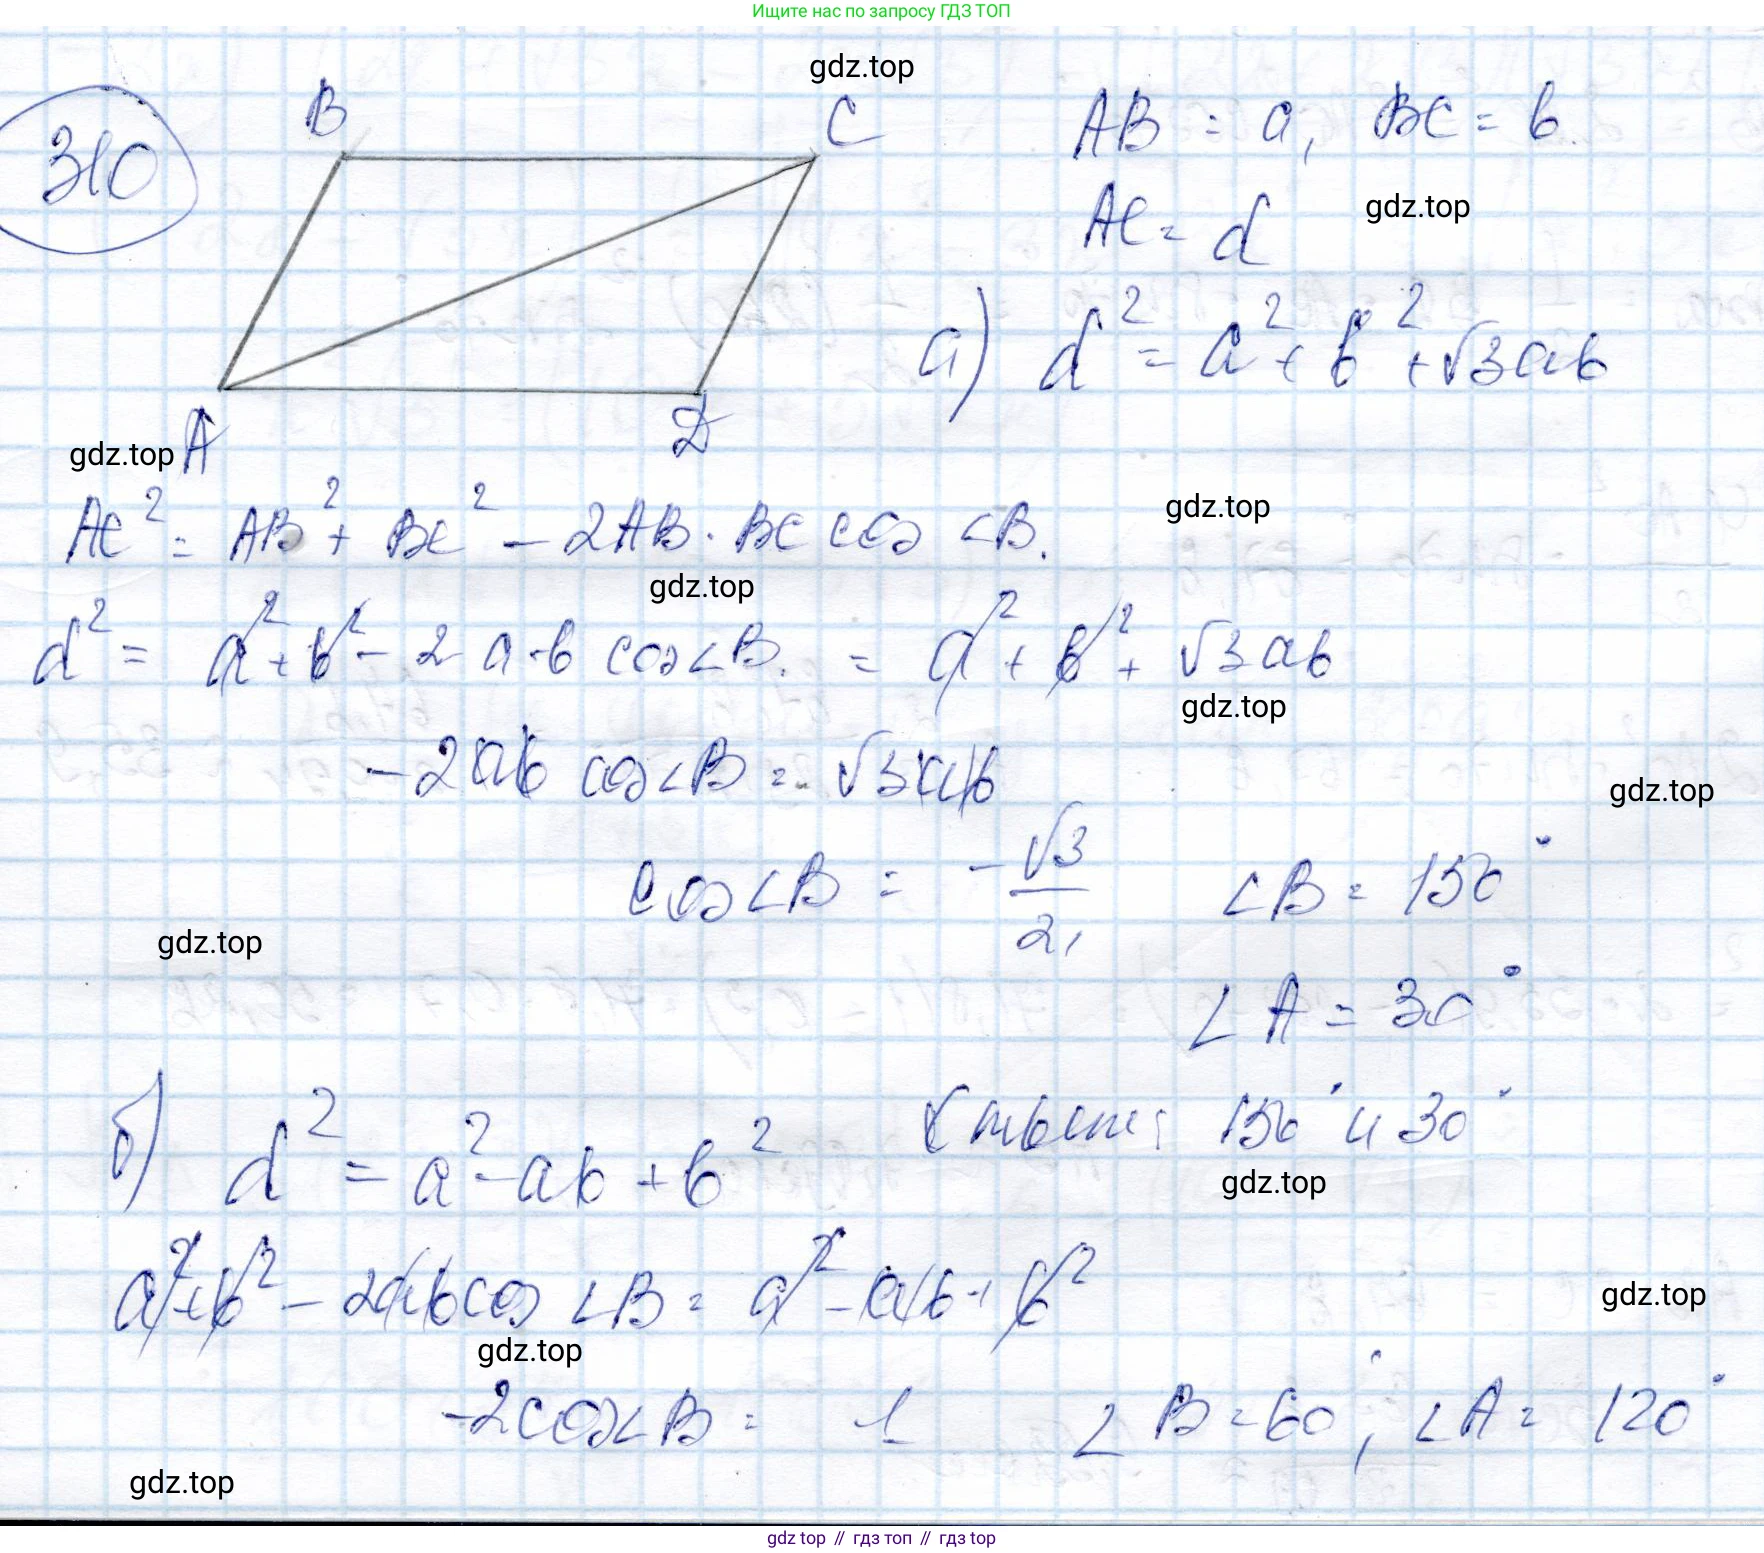 Ищите нас по запросу ГДЗ ТОП
gdz.top
310
B
C
AB = a, BC = b.
AC = d
gdz.top
а) d² = a² + b² + √3ab
A
D
gdz.top
AC² = AB² + BC² - 2AB · BC cos ∠B.
gdz.top
gdz.top
d² = a² + b² - 2 a · b cos ∠B. = a² + b² + √3 ab
gdz.top
-2ab cos ∠B = √3ab
gdz.top
cos ∠B = -√3/2, ∠B = 150°
gdz.top
∠A = 30°
Ответ: 150° и 30°
б) d² = a² - ab + b²
gdz.top
a² + b² - 2ab cos ∠B = a² - ab + b²
gdz.top
gdz.top
-2cos ∠B = -1 ∠B = 60°, ∠A = 120°
gdz.top
gdz top // гдз топ // гдз top